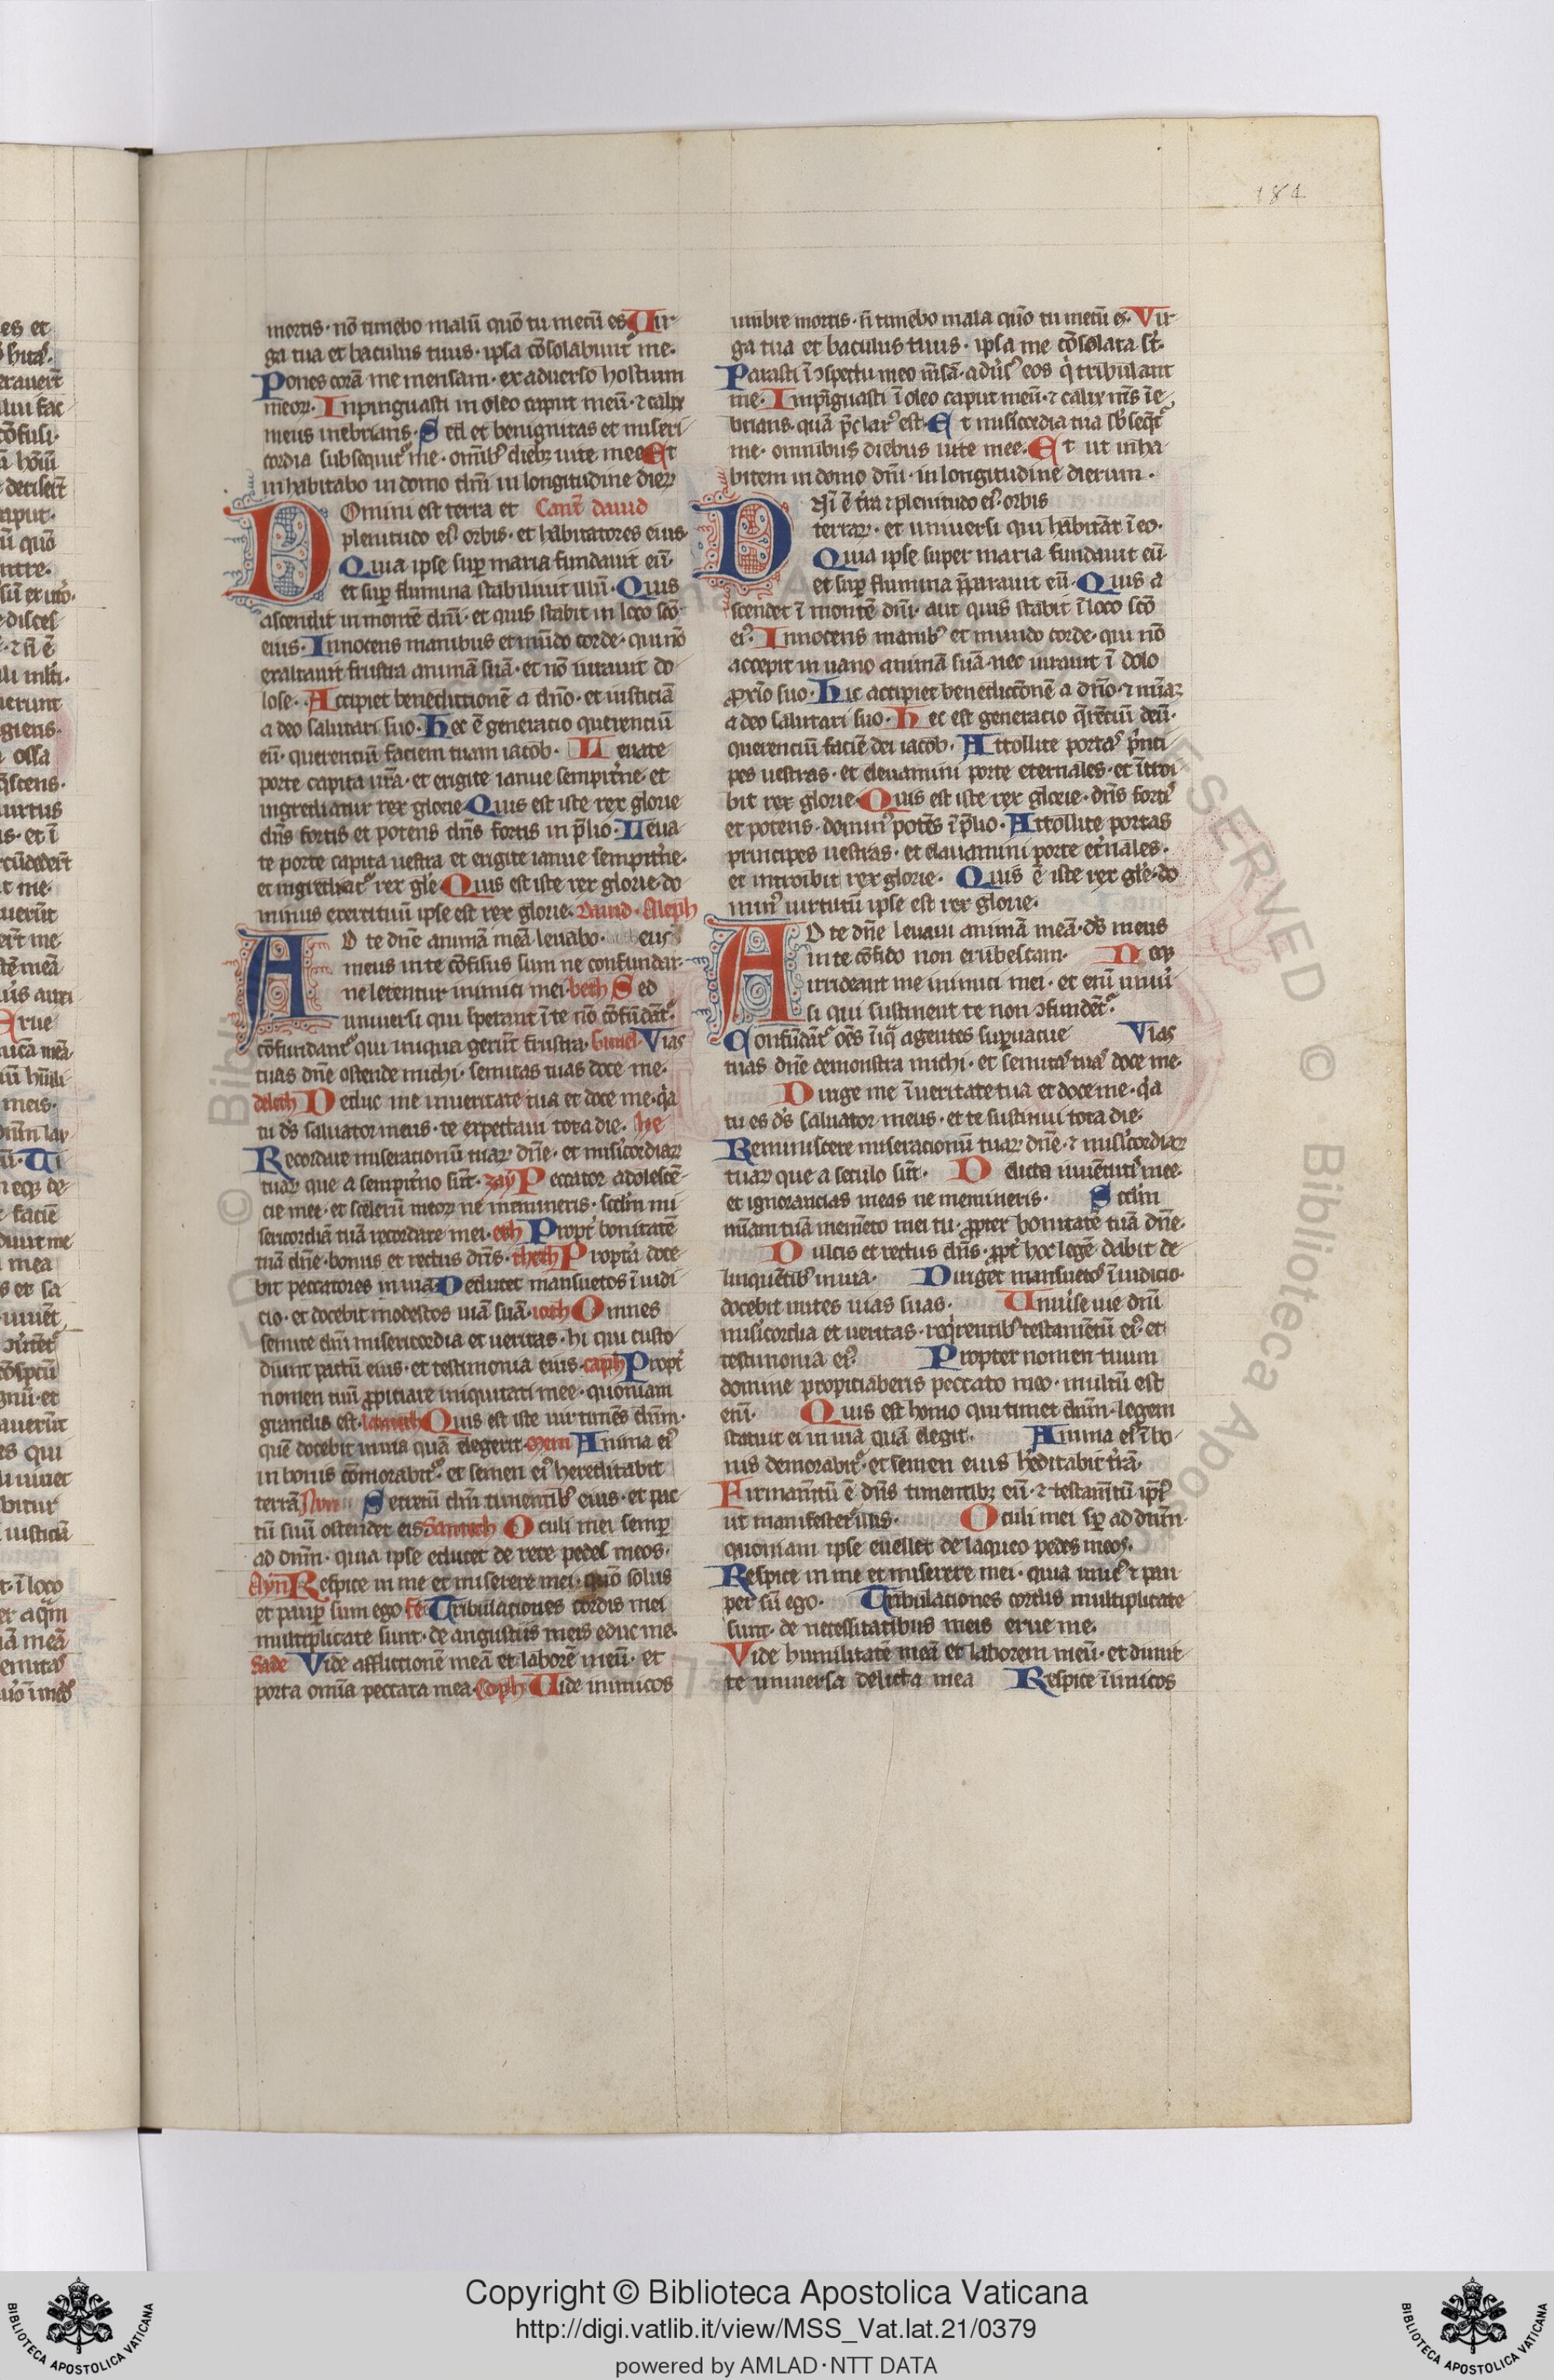 184
mortis· nō timebo malū quō tu mecū es Uir
ga tua et baculus tuus· ipsa cōsolabunt᷒ me·
Pones corā me mensam· ex aduerso hostium
meoꝝ· Inpinguasti in oleo caput meū· ⁊ calix
meus inebrians· Sed et benignitas et miseri
cordia subsequit᷒ me· omīb᷒ dieb᷒ uite mee Et
inhabitabo in domo dn̄i in longitudine dieꝝ
Domini est terra et Cant̄ dauid
plenitudo ei᷒ orbis· et habitatores eius·
Quia ipse suꝑ maria fundauit eū·
et suꝑ flumina stabiliuit illū· Quis
ascendit in montē dn̄i· et quis stabit in loco scō
eius· Innocens manibus et mūdo corde· qui nō
exaltauit frustra animā suā· et nō iurauit do
lose· Accipiet benedictionē a dn̄o· et iusticiā
a deo salutari suo· Hec ē generatio querentiū
eū· querentiū faciem tuam iacob· Leuate
porte capita ur̄a· et erigite ianue sempit̄ne et
ingrediatur rex glorie Quis est iste rex glorie
dn̄s fortis et potens dn̄s fortis in p̄lio· Leua
te porte capita uestra et erigite ianue sempit̄ne·
et ingrediat᷒ rex gl̄e Quis est iste rex glorie do
minus exercituū ipse est rex glorie· Dauid· Aleph
AD te dn̄e animā meā leuabo· eus
meus in te cōfisus sum ne confundar·
ne letentur inimici mei· beth Sed
uniuersi qui sperant ī te nō cōfūdāt᷒·
cōfundant᷒ qui iniqua gerūt frustra· gimel· Vias
tuas dn̄e ostende michi· semitas tuas doce me·
deleth Deduc me in ueritate tua et doce me· q̇a
tu dꝰs saluator meus· te expectaui tota die· he
Recordare miserationū tuaꝝ dn̄e· et mis̄icordiaꝝ
tuaꝝ que a sempit̄no sūt· zay Peccatoꝝ adolescē
cie mee· et scelerū meoꝝ ne memineris· scd̄m mi
sericordiā tuā recordare mei· eth Propt̄ bonitatē
tuā dn̄e· bonus et rectus dn̄s· theth Propt̄a doce
bit peccatores in uia Deducet mansuetos ī iudi
cio· et docebit modestos uiā suā· ioth Omnes
semite dn̄i misericordia et ueritas· hi qui custo
diunt pactū eius· et testimonia eius· caph Propt̄
nomen tuū ꝓpitiare iniquitati mee· quoniam
grandis est· lameth Quis est iste uir timēs dn̄m·
quē docebit in uia quā elegerit· Mem Anima ei᷒
in bonis cōmorabit᷒· et semen ei᷒ hereditabit
terrā Nun Secretū dn̄i timentib᷒ eius· et pac
tū suū ostendet eis Samech Oculi mei semꝑ
ad dn̄m· quia ipse educet de rete pedes meos·
Ayn Respice in me et miserere mei· quō solus
et pauꝑ sum ego fe Tribulationes cordis mei
multiplicate sunt· de angustiis meis educ me·
Sade Vide afflictionē meā et laborē meū· et
porta om̄ia peccata mea· Coph Uide inimicos
umbre mortis· n̄ timebo mala quō tu mecū es· Vir
ga tua et baculus tuus· ipsa me cōsolata st̄·
Parasti ī ↄspectu meo m̄sā· adūs᷒ eos q̇ tribulant
me· Impīguasti ī oleo caput meū· ⁊ calix m̄s īe
brians· quā p̄clar᷒ est· Et mis̄icordia tua sb̄seq̄t᷒
me· omnibus diebus uite mee· Et ut inha
bitem in domo dn̄i· in longitudine dierum·
Dn̄i ē t̄ra ⁊ plenitudo ei᷒· orbis
terraꝝ· et uniuersi qui habitāt ī eo·
Quia ipse super maria fundauit eū·
et suꝑ flumina p̄parauit eū· Quis a
scendet ī montē dn̄i· aut quis stabit ī loco scō
ei᷒· Innocens manib᷒ et mundo corde· qui nō
accepit in uano animā suā· nec iurauit ī dolo
ꝓxīo suo· Hic accipiet benedictōnē a dn̄o· ⁊ mīaꝫ
a deo salutari suo· Hec est generatio q̄rētiū deū·
querentiū faciē dei iacob· Attollite portas p̄nci
pes uestras· et eleuamini porte eternales· et īttoi
bit rex glorie· Quis est iste rex glorie· dn̄s forti᷒
et potens· domin᷒ potēs ī p̄lio· Attollite portas
principes uestras· et eleuamini porte et̄nales·
et introibit rex glorie· Quis ē iste rex gl̄e· do
min᷒ uirtutū ipse est rex glorie·
AD te dn̄e leuaui animā meā· dꝰs meus
in te cōfido non erubescam· Neqꝫ
irrideant me inimici mei· et enī uniū
si qui sustinent te non ↄfundēt᷒·
Confūdāt᷒ oēs īiq̄ agentes suꝑuacue Vias
tuas dn̄e demonstra michi· et semitas tuas doce me·
Dirige me ī ueritate tua et doce me· q̇a
tu es dꝰs saluator meus· et te sustinui tota die·
Reminiscere miserationū tuaꝝ dn̄e· ⁊ mis̄icordiaꝝ
tuaꝝ que a seculo sūt· Delicta iuuētuti᷒ mee·
et ignorancias meas ne memineris· Scd̄m
mīam tuā memēto mei tu· ꝓpter bonitatē tuā dn̄e·
Dulcis et rectus dn̄s· ꝓpt̄ hoc legē dabit de
linquētib᷒ in uia· Diriget mansueto᷒ ī iudicio·
docebit mites uias suas· Uniu̇se uie dn̄i
mis̄icordia et ueritas· req̇rentib᷒ testamētū ei᷒· et
testimonia ei᷒· Propter nomen tuum
domine propitiaberis peccato meo· multū est
enī· Quis est homo qui timet dn̄m· legem
statuit ei in uia quā elegit· Anima ei᷒ ī bo
nis demorabit᷒· et semen eius h̄editabit t̄rā·
Firmam̄tū ē dn̄s timentibꝫ eū· ⁊ testam̄tū ip̄i᷒
ut manifestet illis· Oculi mei sꝑ ad dn̄m·
quoniam ipse euellet de laqueo pedes meos·
Respice in me et miserere mei· quia unic᷒ ⁊ pau
per sū ego· Tribulationes cordis multiplicate
sunt· de necessitatibus meis erue me·
Vide humilitatē meā et laborem meū· et dimit
te uniuersa delicta mea Respice īimicos
Copyright © Biblioteca Apostolica Vaticana
http://digi.vatlib.it/view/MSS_Vat.lat.21/0379
powered by AMLAD·NTT DATA